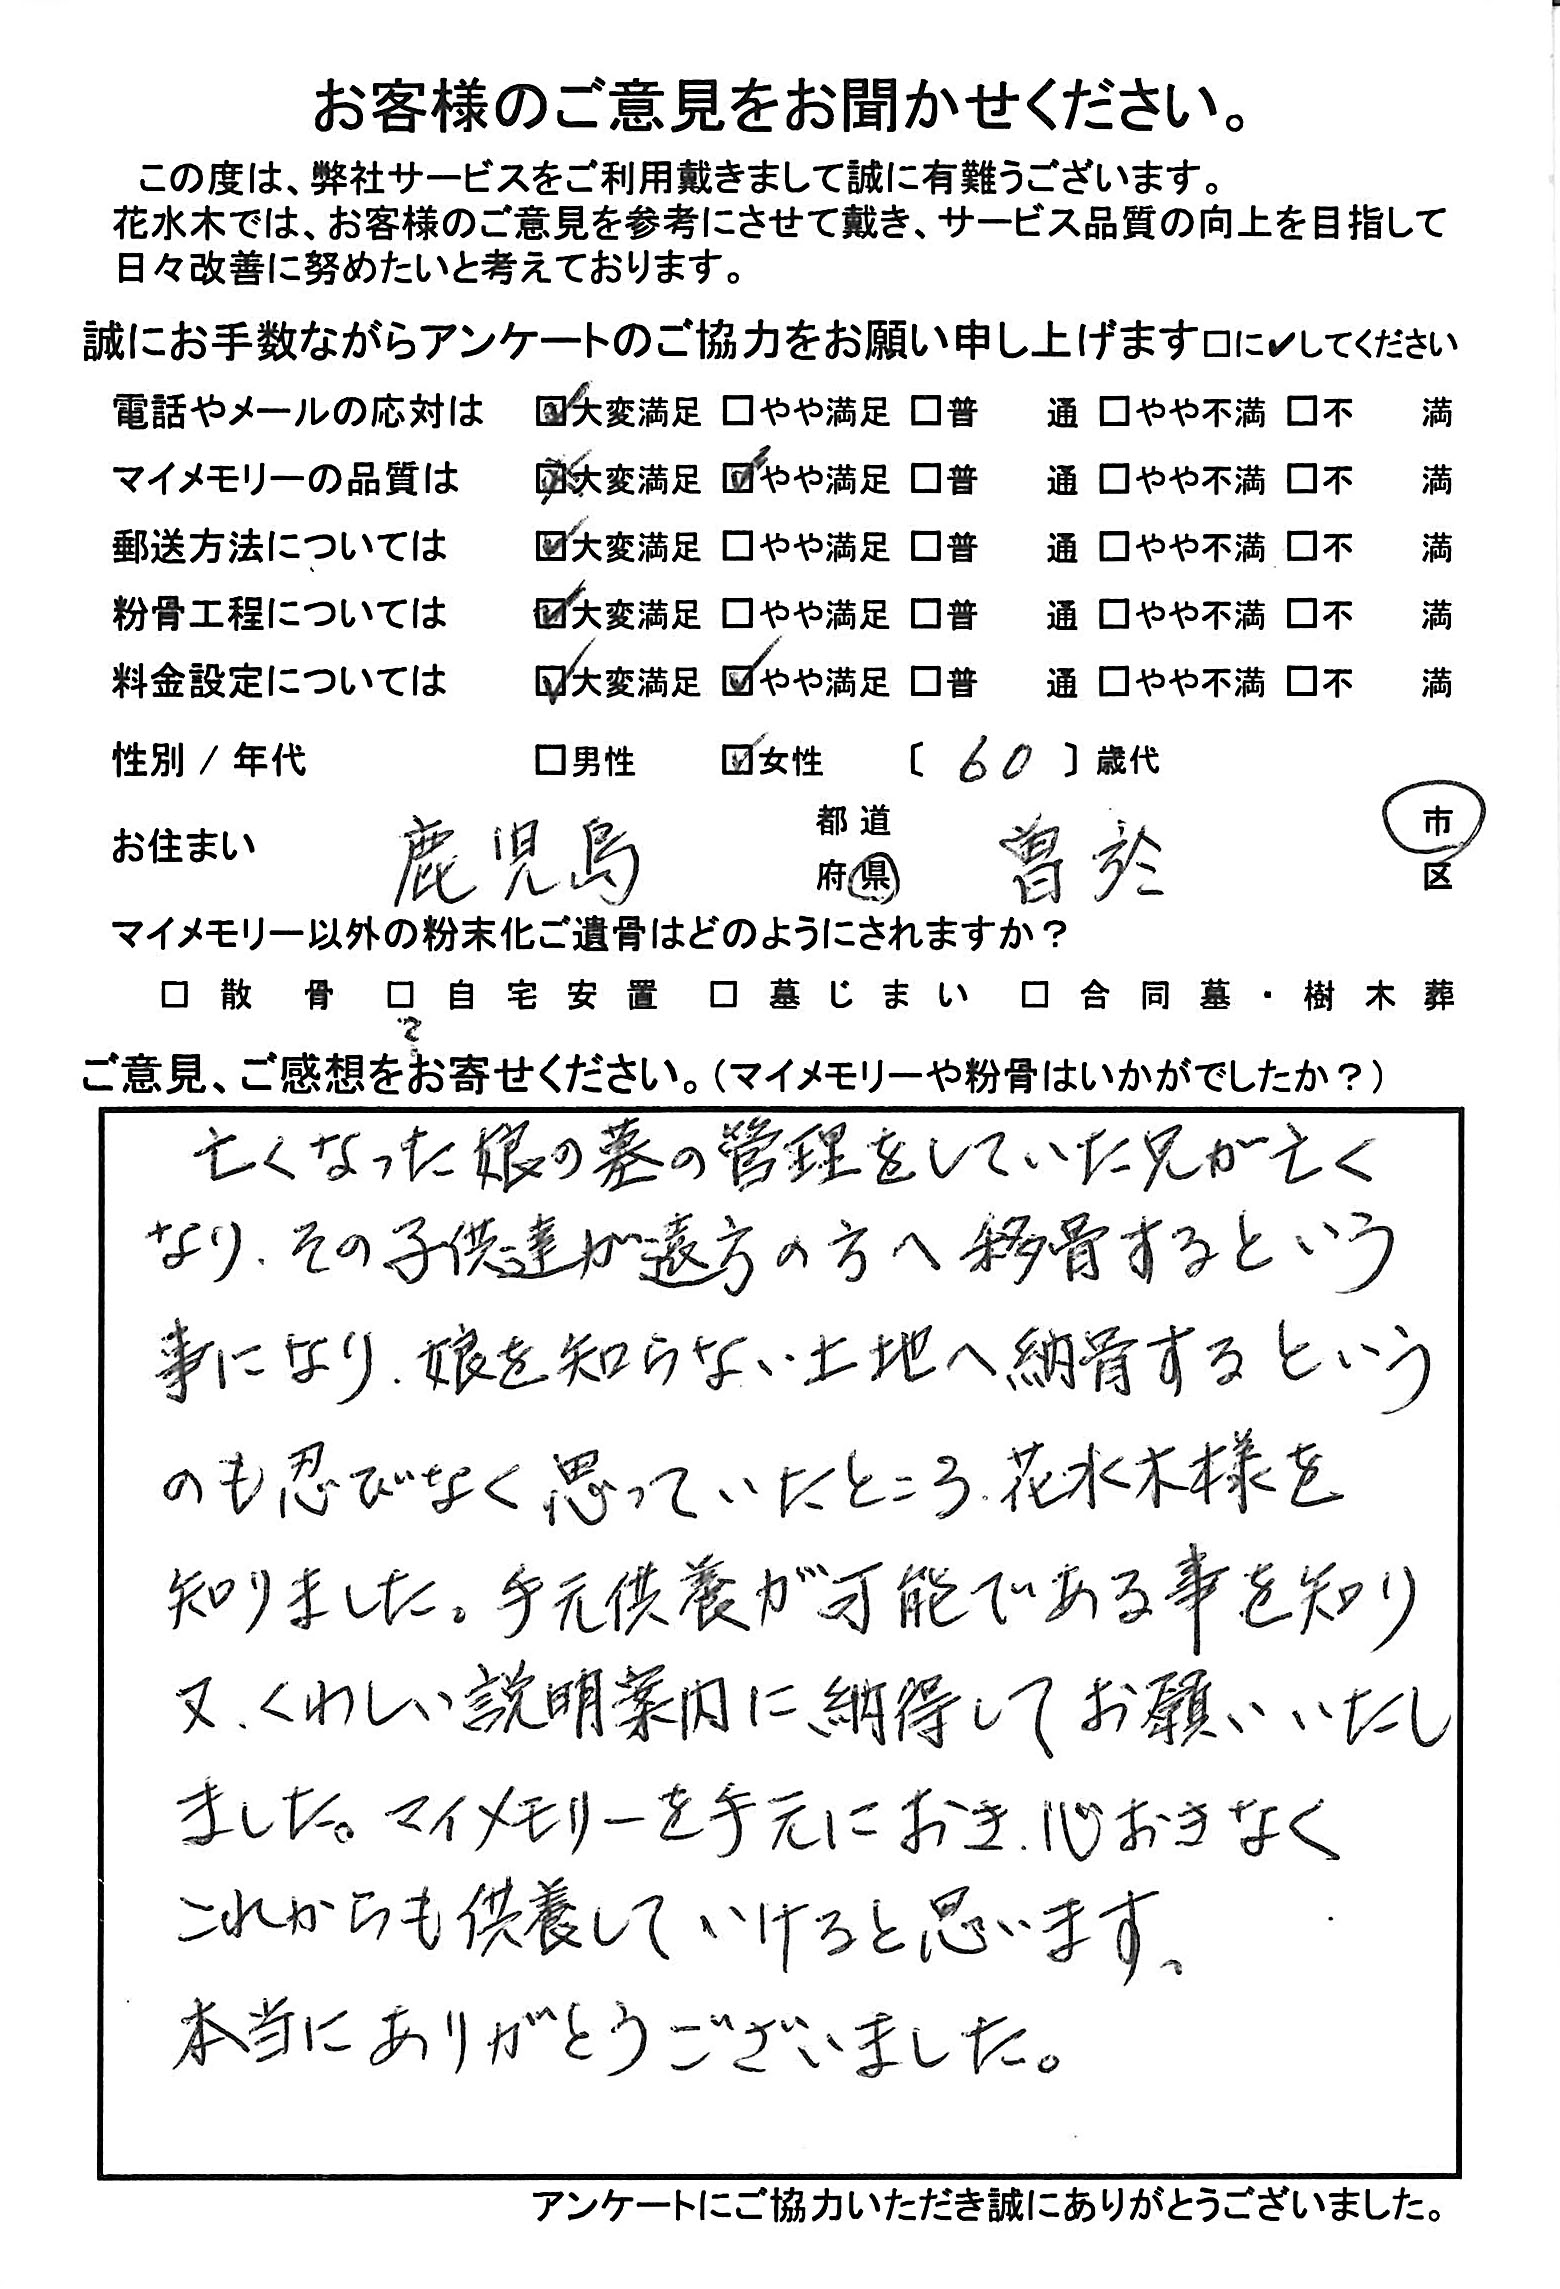 お客様のご意見をお聞かせください。
この度は、弊社サービスをご利用戴きまして誠に有難うございます。
花水木では、お客様のご意見を参考にさせて戴き、サービス品質の向上を目指して
日々改善に努めたいと考えております。
誠にお手数ながらアンケートのご協力をお願い申し上げます□に✔してください
電話やメールの応対は ☑大変満足 □やや満足 □普 通 □やや不満 □不 満
マイメモリーの品質は ☒大変満足 ☑やや満足 □普 通 □やや不満 □不 満
郵送方法については ☑大変満足 □やや満足 □普 通 □やや不満 □不 満
粉骨工程については ☑大変満足 □やや満足 □普 通 □やや不満 □不 満
料金設定については ☑大変満足 ☑やや満足 □普 通 □やや不満 □不 満
性別 / 年代 □男性 ☑女性 〔 60 〕歳代
お住まい 鹿児島 都道府県 曽於 市区
マイメモリー以外の粉末化ご遺骨はどのようにされますか？
□ 散骨 □ 自宅安置 □ 墓じまい □ 合同墓・樹木葬
?
ご意見、ご感想をお寄せください。（マイメモリーや粉骨はいかがでしたか？）
亡くなった娘の墓の管理をしていた兄が亡く
なり、その子供達が遠方の方へ移骨するという
事になり、娘を知らない土地へ納骨するという
のも忍びなく思っていたところ、花水木様を
知りました。手元供養が可能である事を知り
又、くわしい説明案内に、納得してお願いいたし
ました。マイメモリーを手元におき、心おきなく
これからも供養していけると思います、
本当にありがとうございました。
アンケートにご協力いただき誠にありがとうございました。